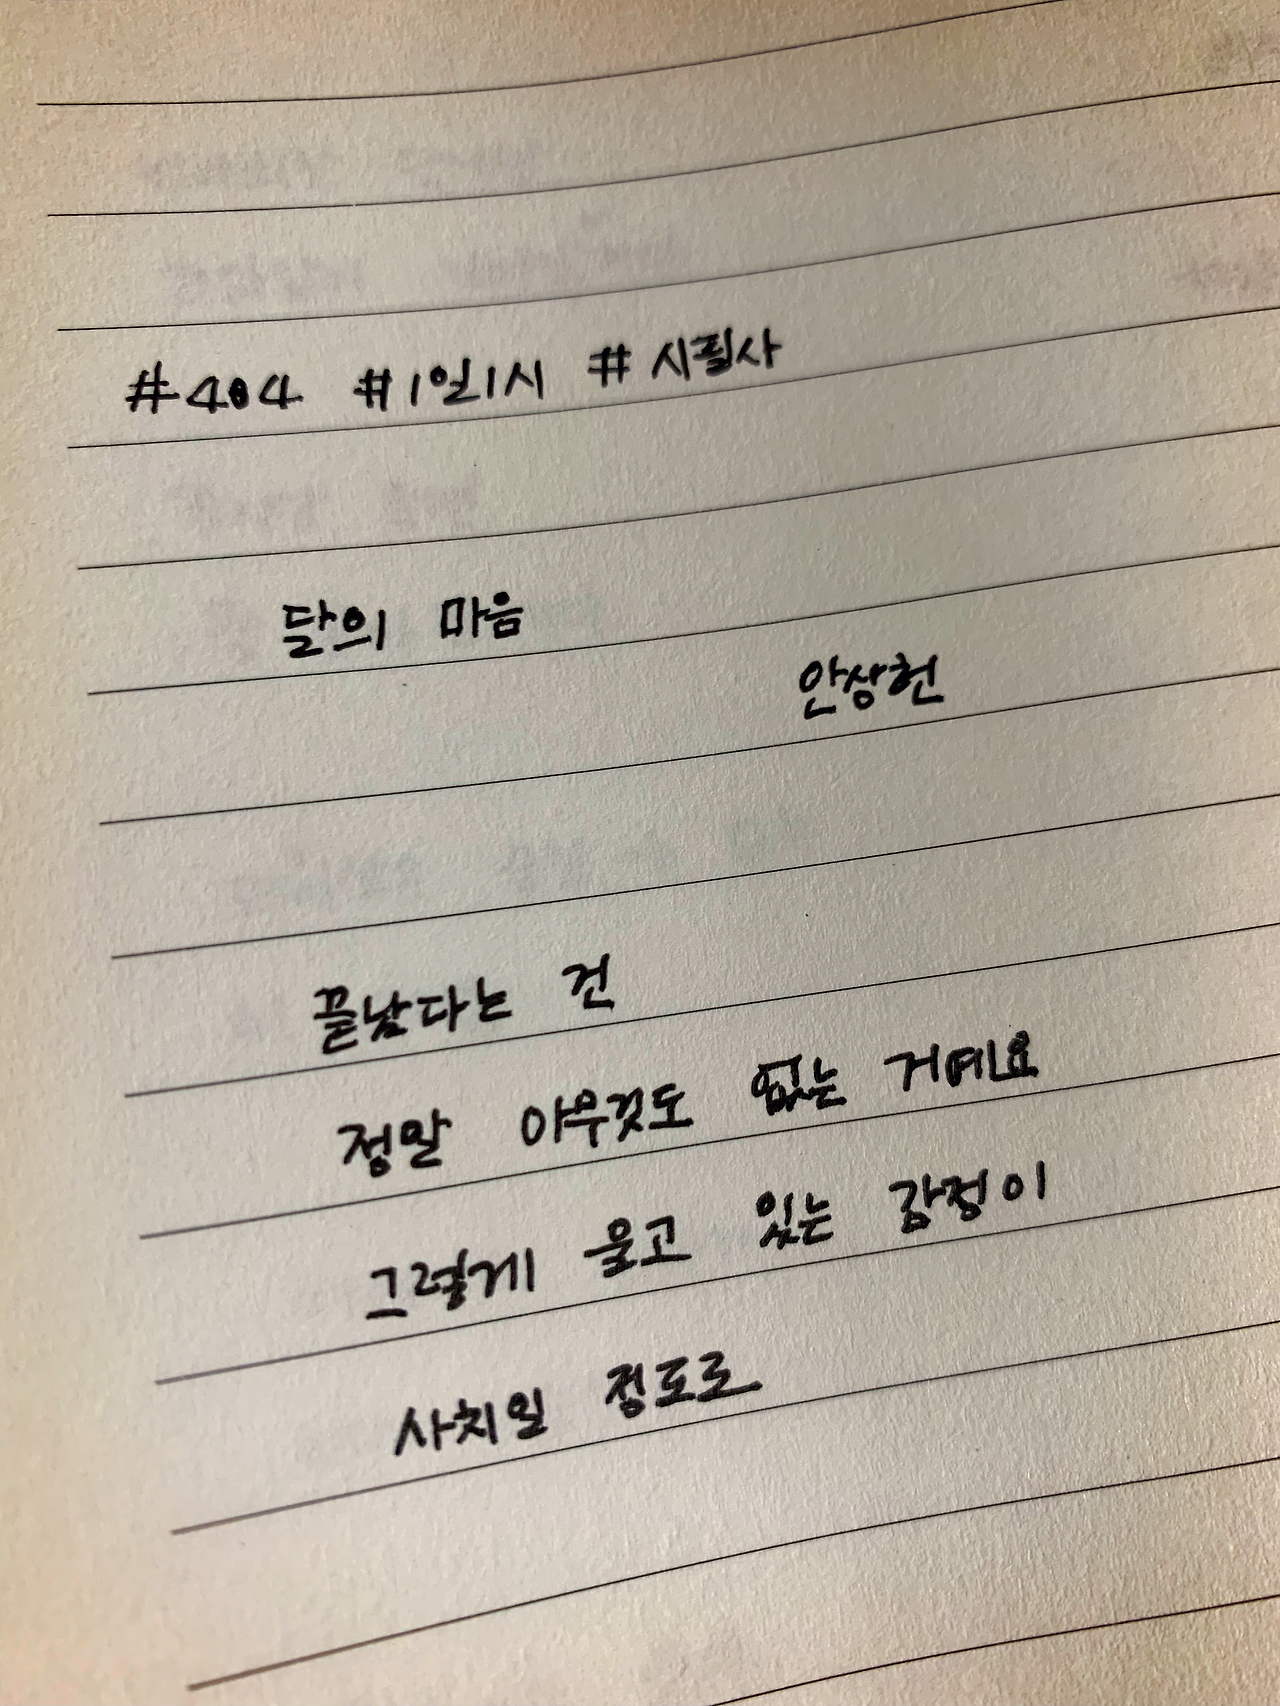 #404 #1일1시 #시필사
달의 마음
안상현
끝났다는 건
정말 아무것도 없는 거예요
그렇게 울고 있는 감정이
사치일 정도로